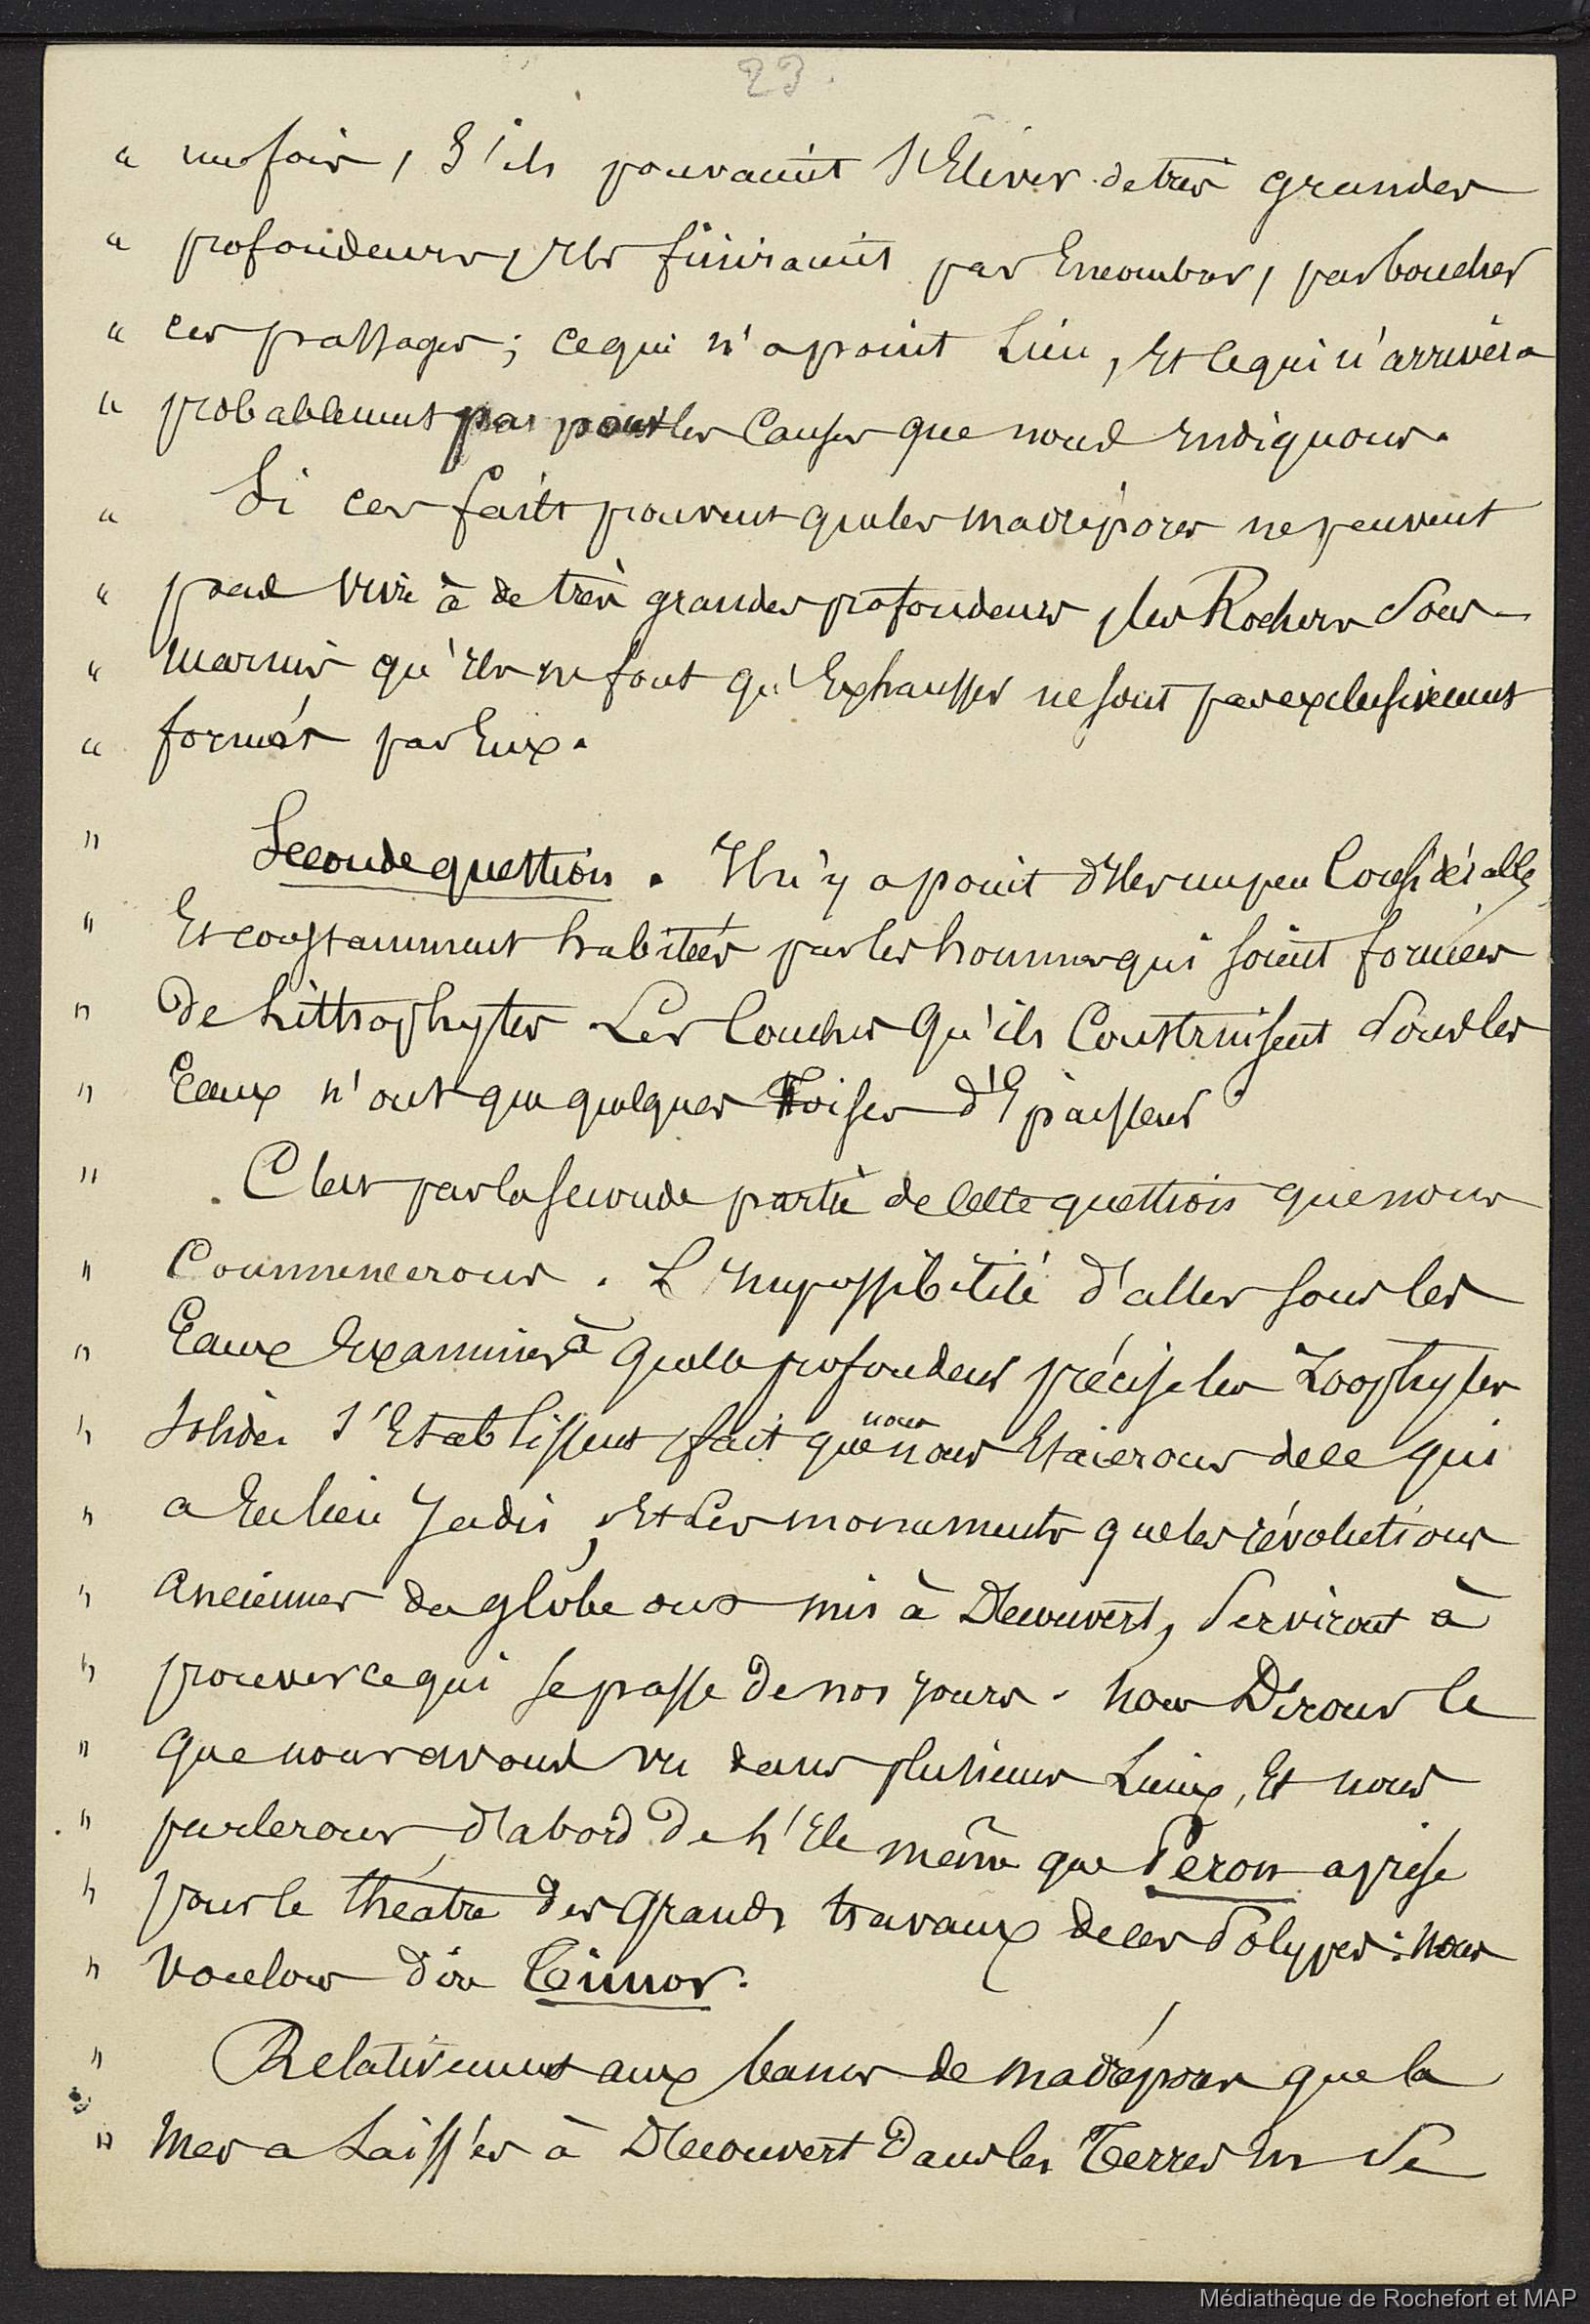 23.
" une fois, s'ils pouvaient s'Elever de très grandes
" profondeurs, Ils finiraient par Encombrer, par boucher
" ces passages ; ce qui n'a point Lieu, Et ce qui n'arrivera
" probablement pas pour les Causes que nous Indiquons.
" Si ces faits prouvent que les madrépores ne peuvent
" pas vivre à de très grandes profondeurs, les Rochers Sous-
" marins qu'Ils ne font qu'Exhausser ne sont pas exclusivement
" formés par Eux.
" Seconde question. Il n'y a point d'Iles un peu Considérables
" Et constamment habitées par les hommes qui soient formées
" de Litthophytes Les Couches qu'ils Construisent Sous les
" Eaux n'ont que quelques Toises d'Epaisseur
" C'est par la seconde partie de cette question que nous
" Commencerons. L'Impossibilité d'aller sous les
" Eaux Examiner à quelle profondeur précise les Zoophytes
" solides s'Etablissent, fait que nous nous Etaierons de ce qui
" a Eu lieu Jadis ; Et Les monuments que les révolutions
" anciennes du globe ont mis à Découvert, Serviront à
" prouver ce qui se passe de nos jours. nous Dirons ce
" que nous avons vu dans plusieurs Lieux, Et nous
" parlerons d'abord de L'Ile même que Peron a prise
" pour le théâtre des grands travaux de ces Polypes : nous
" voulons dire Timor.
" Relativement aux bancs de madrépores que la
" mer a Laissés à Découvert Dans les Terres En Se
Médiathèque de Rochefort et MAP